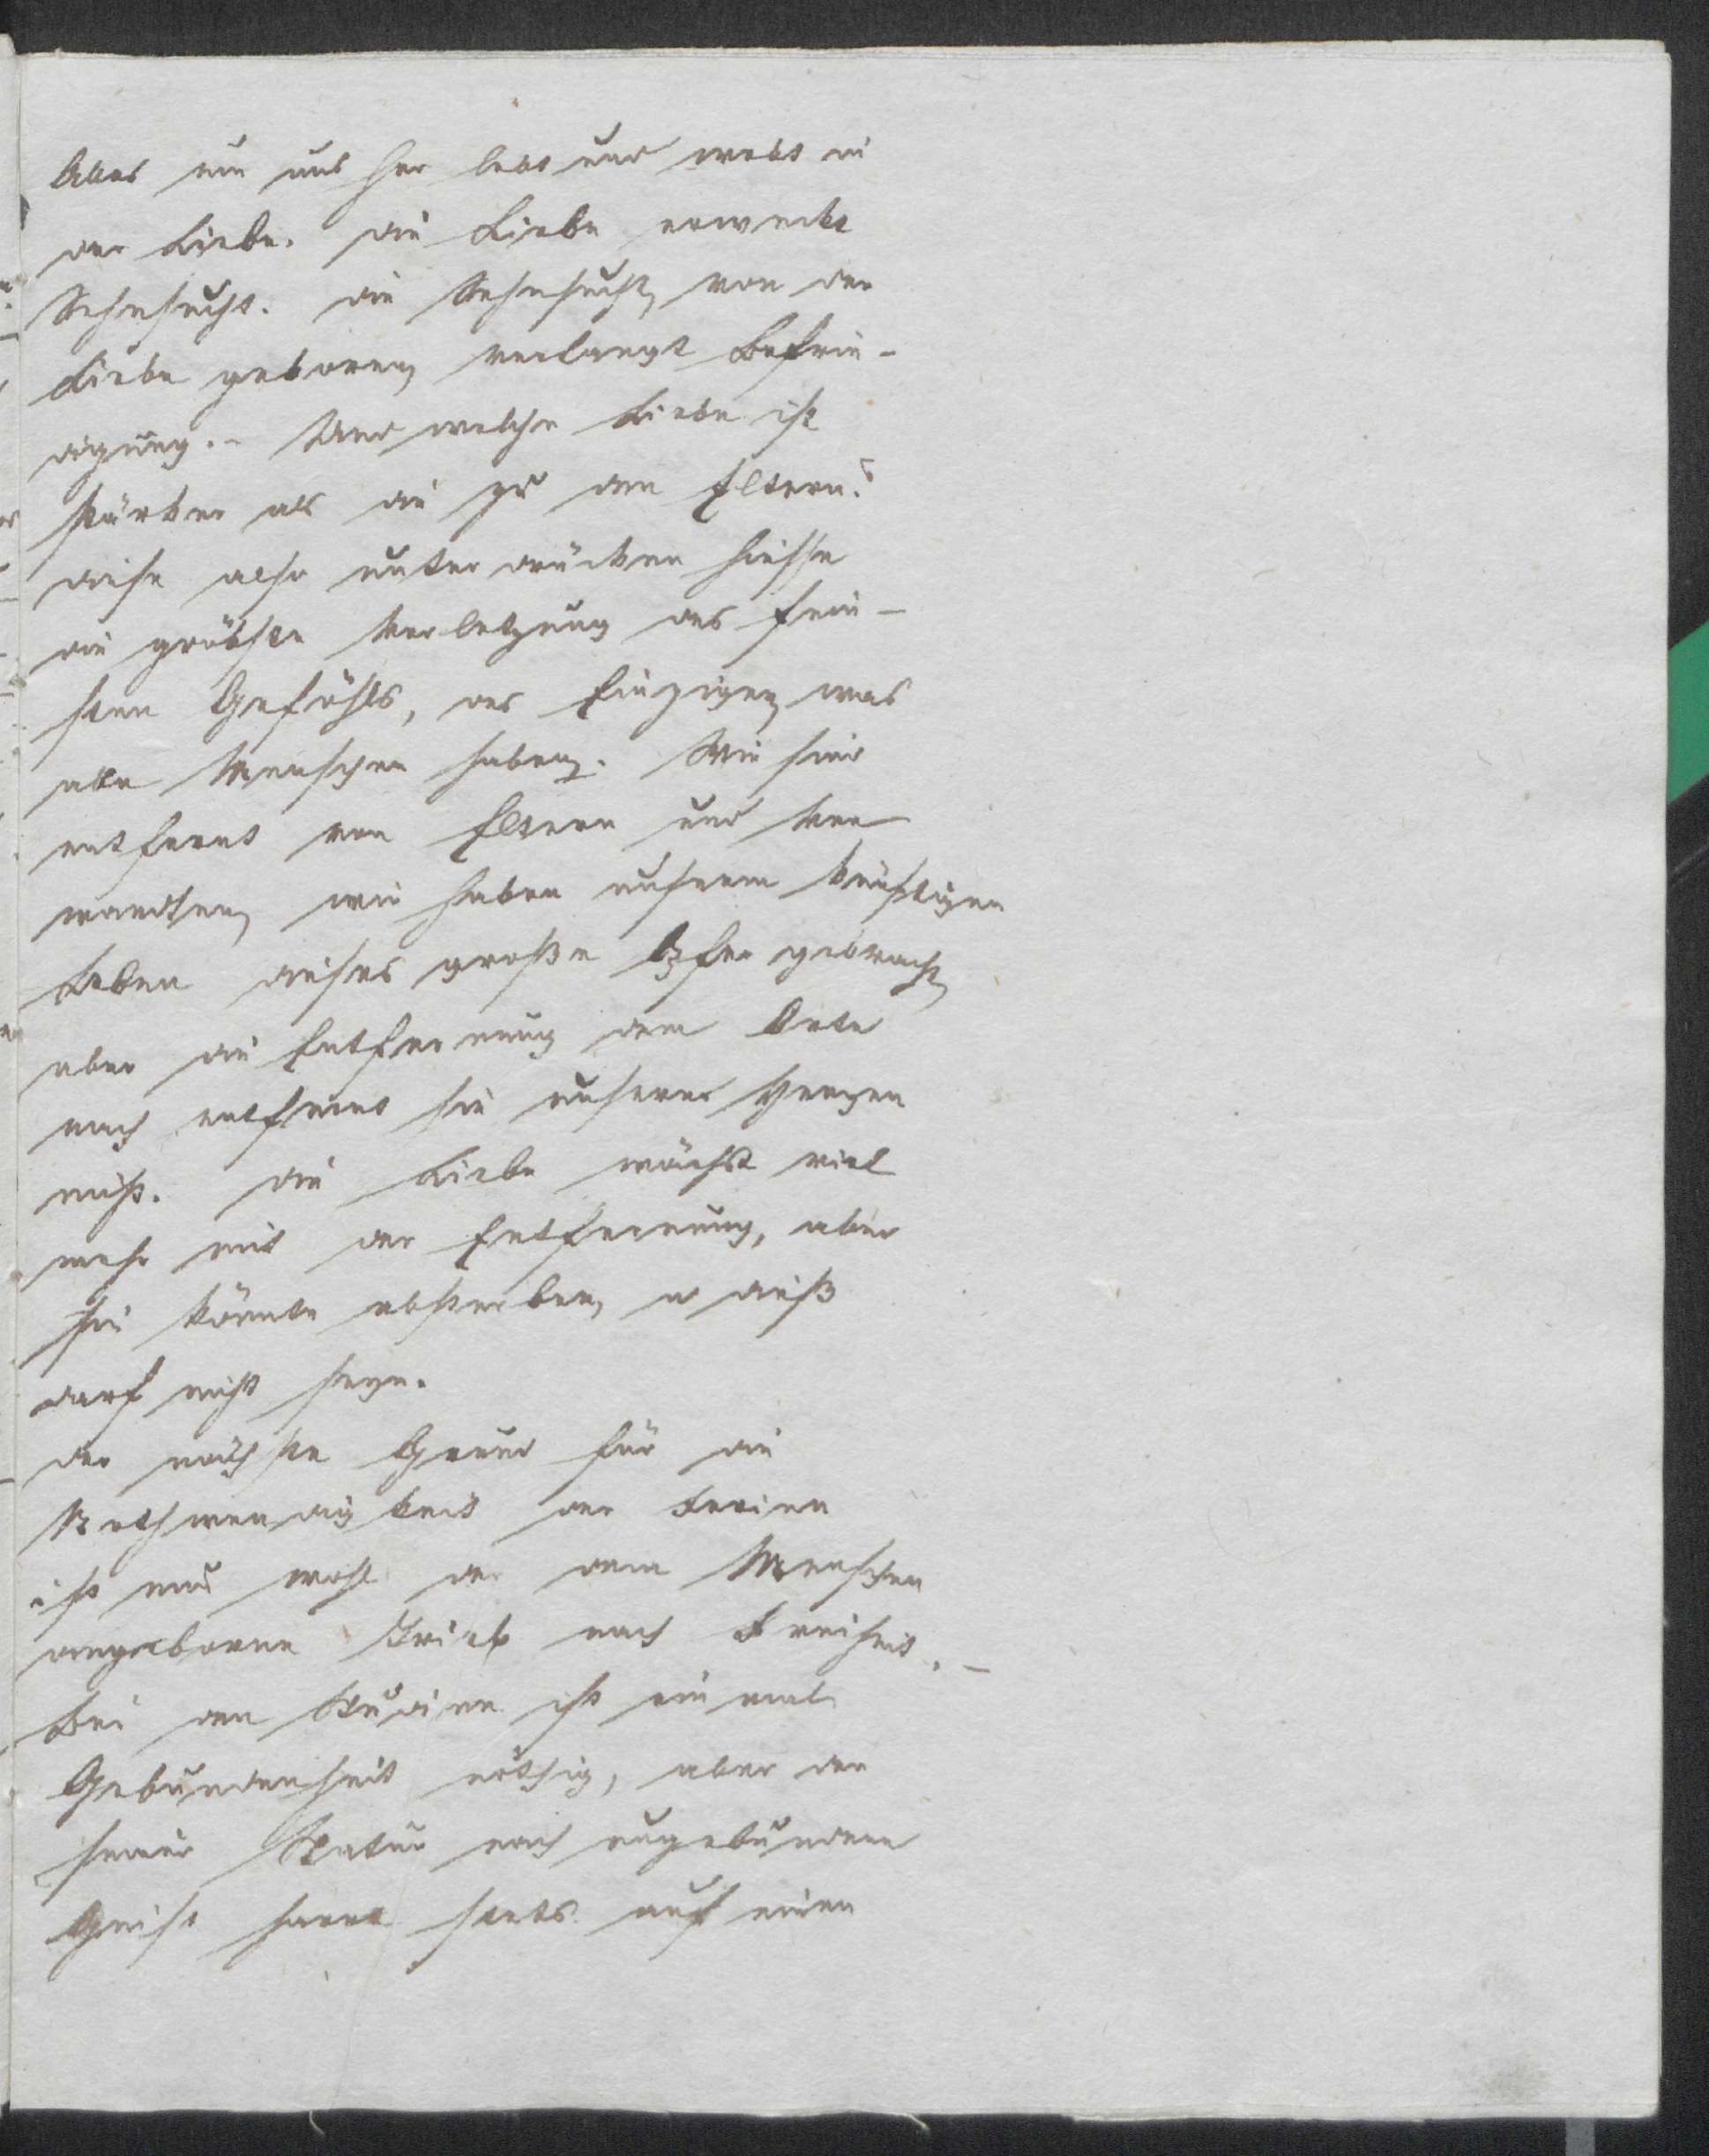 Alles um uns her lebt und webt in
der Liebe. die Liebe erweckt
Sehnsucht. die Sehnsucht, von der
Liebe geboren, verlangt Befrie-
digung. – Und welche Liebe ist
stärker als die zu den Eltern?
diese also unterdrücken hiesse
die gröbste Verletzung des fein-
sten Gefühls, des Einzigen, was
alle Menschen haben. Wir sind
entfernt von Eltern und Ver
wandten, wir haben unserm künftigen
Leben dieses große Opfer gebracht,
aber die Entfernung dem Orte
nach entfernt sie unserer Herzen
nicht. die Liebe wächst viel
mehr mit der Entfernung, aber
sie könnte absterben, u dieß
darf nicht seyn.
der nächste Grund für die
Nothwendigkeit der Ferien
ist nun wohl der dem Menschen
angeborne Trieb nach Freiheit. –
Bei den Studien ist einmal
Gebundenheit nöthig, aber der
seiner Natur nach ungebundene
Geist harrt stets auf einen